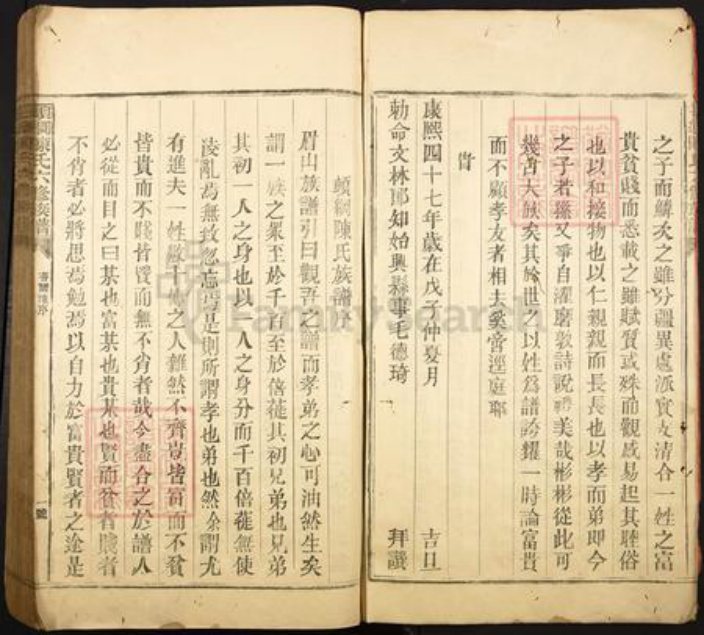 之子而鱗炙之雖分疆異處派實
清合一姓之富
貴貧賤而悉載之雖賦質或殊而觀感易起其睦俗
也以和接物也以仁親親而長長也以孝而弟即今
之子若孫又爭自濯磨敦詩說禮美哉彬彬從此可
幾古大族矣其於世之以姓為譜誇耀一時論富貴
而不顧孝友者相去奚啻逕庭耶
康熙四十七年歲在戊子仲夏月 吉旦
勅命文林郎知始興縣事毛德琦 拜譔
陳氏族譜序
眉山族譜引曰觀吾之譜而孝弟之心可油然生矣
謂一族之眾至於千百至於倍蓰其初兄弟也兄弟
其初一人之身也以一人之身分而千百倍蓰無使
凌亂焉無致忽忘焉是則所謂孝也弟也然余謂尤
有進夫一姓數十世之人雜然不齊豈皆富而不貧
皆貴而不賤皆賢而無不肖者哉今盡合之於譜人
必從而目之曰某也富某也貴某也賢而貧者賤者
不肖者必將思焉勉焉以自力於富貴賢者之途是
陳氏六修族譜
一號
FamilySearch